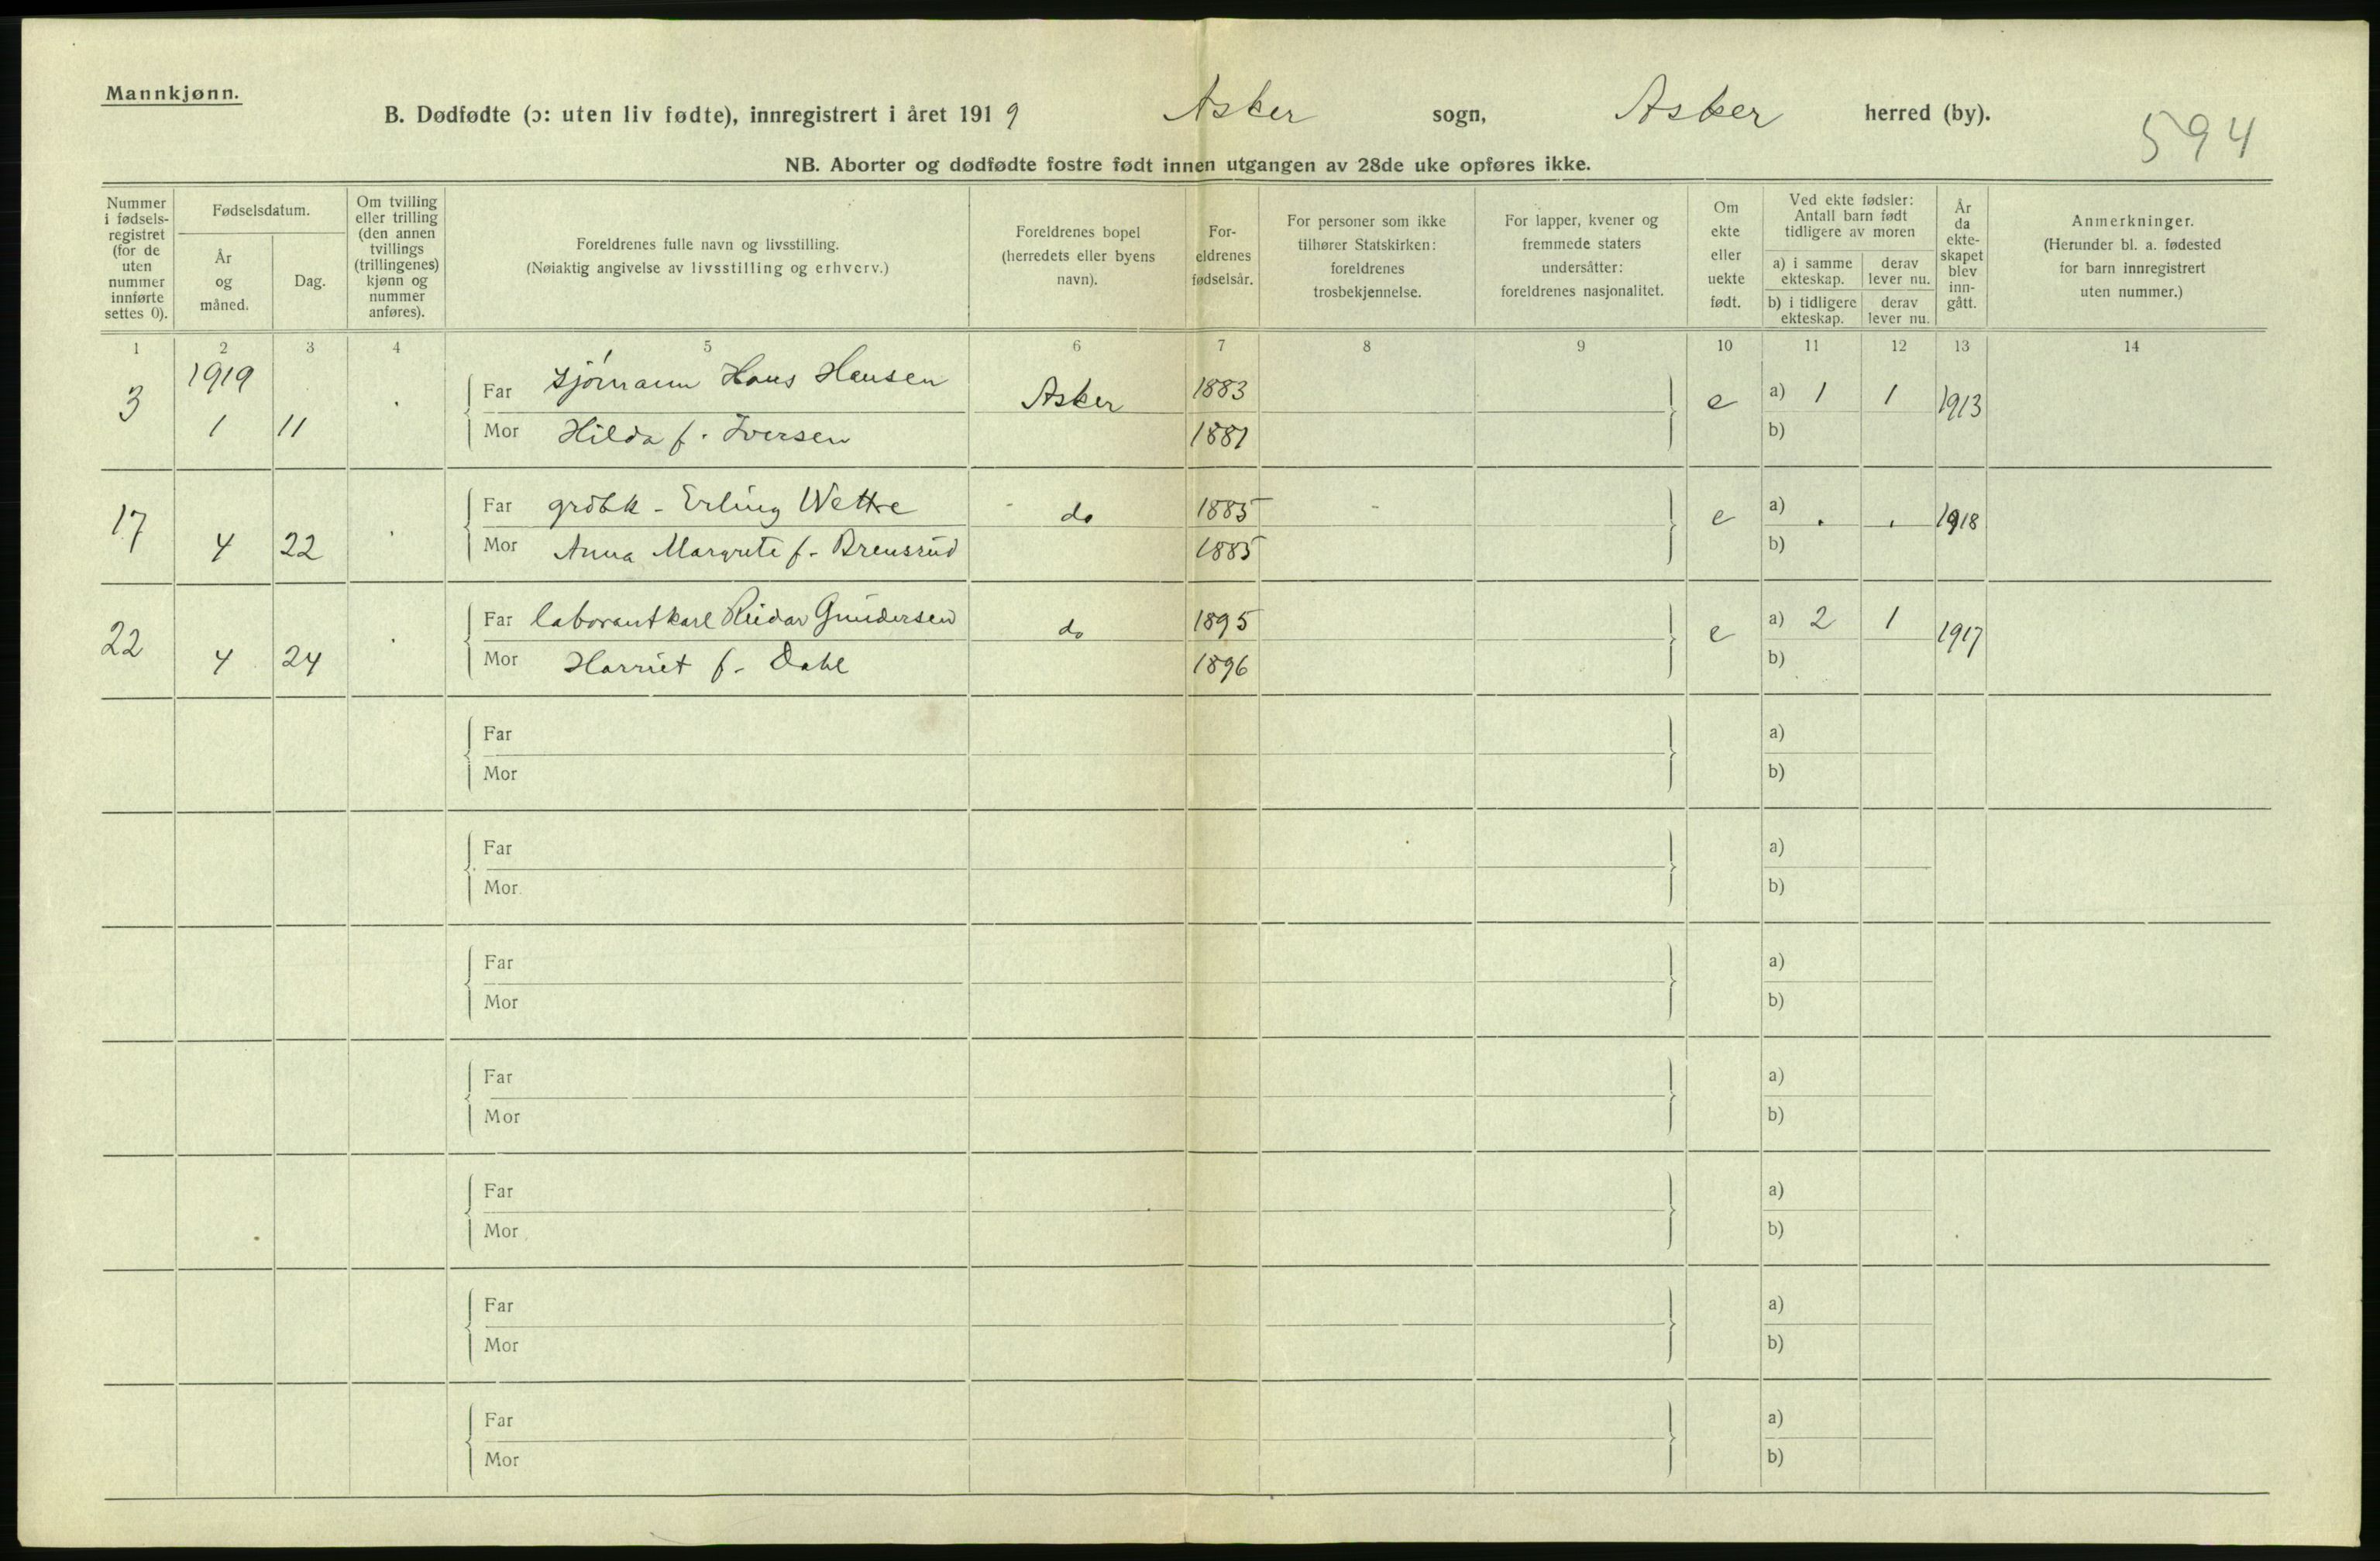 Mannkjønn.
B. Dødfødte (ɔ: uten liv fødte), innregistrert i året 1919 Asker sogn, Asker herred (by).
594
NB. Aborter og dødfødte fostre født innen utgangen av 28de uke opføres ikke.
Nummer i fødsels- registret (for de uten nummer innførte settes 0).
Fødselsdatum.
År og måned.
Dag.
Om tvilling eller trilling (den annen tvillings (trillingenes) kjønn og nummer anføres).
Foreldrenes fulle navn og livsstilling.
(Nøiaktig angivelse av livsstilling og erhverv.)
Foreldrenes bopel (herredets eller byens navn).
For- eldrenes fødselsår.
For personer som ikke tilhører Statskirken: foreldrenes trosbekjennelse.
For lapper, kvener og fremmede staters undersåtter: foreldrenes nasjonalitet.
Om ekte eller uekte født.
Ved ekte fødsler: Antall barn født tidligere av moren
a) i samme ekteskap. derav lever nu.
b) i tidligere ekteskap. derav lever nu.
År da ekte- skapet blev inn- gått.
Anmerkninger.
(Herunder bl. a. fødested for barn innregistrert uten nummer.)
1 2 3 4 5 6 7 8 9 10 11 12 13 14
1919
3 1 11 Far sjömann Hans Hansen Asker 1883 e a) 1 1 1913
Mor Hilda f. Iversen 1881 b)
17 4 22 Far grdbk - Erling Wettre do 1885 e a) . . 1918
Mor Anna Margrete f. Brensrud 1885 b)
22 4 24 Far laborant Karl Reidar Gundersen do 1895 e a) 2 1 1917
Mor Harriet f. Dahl 1896 b)
Far a)
Mor b)
Far a)
Mor b)
Far a)
Mor b)
Far a)
Mor b)
Far a)
Mor b)
Far a)
Mor b)
Far a)
Mor b)